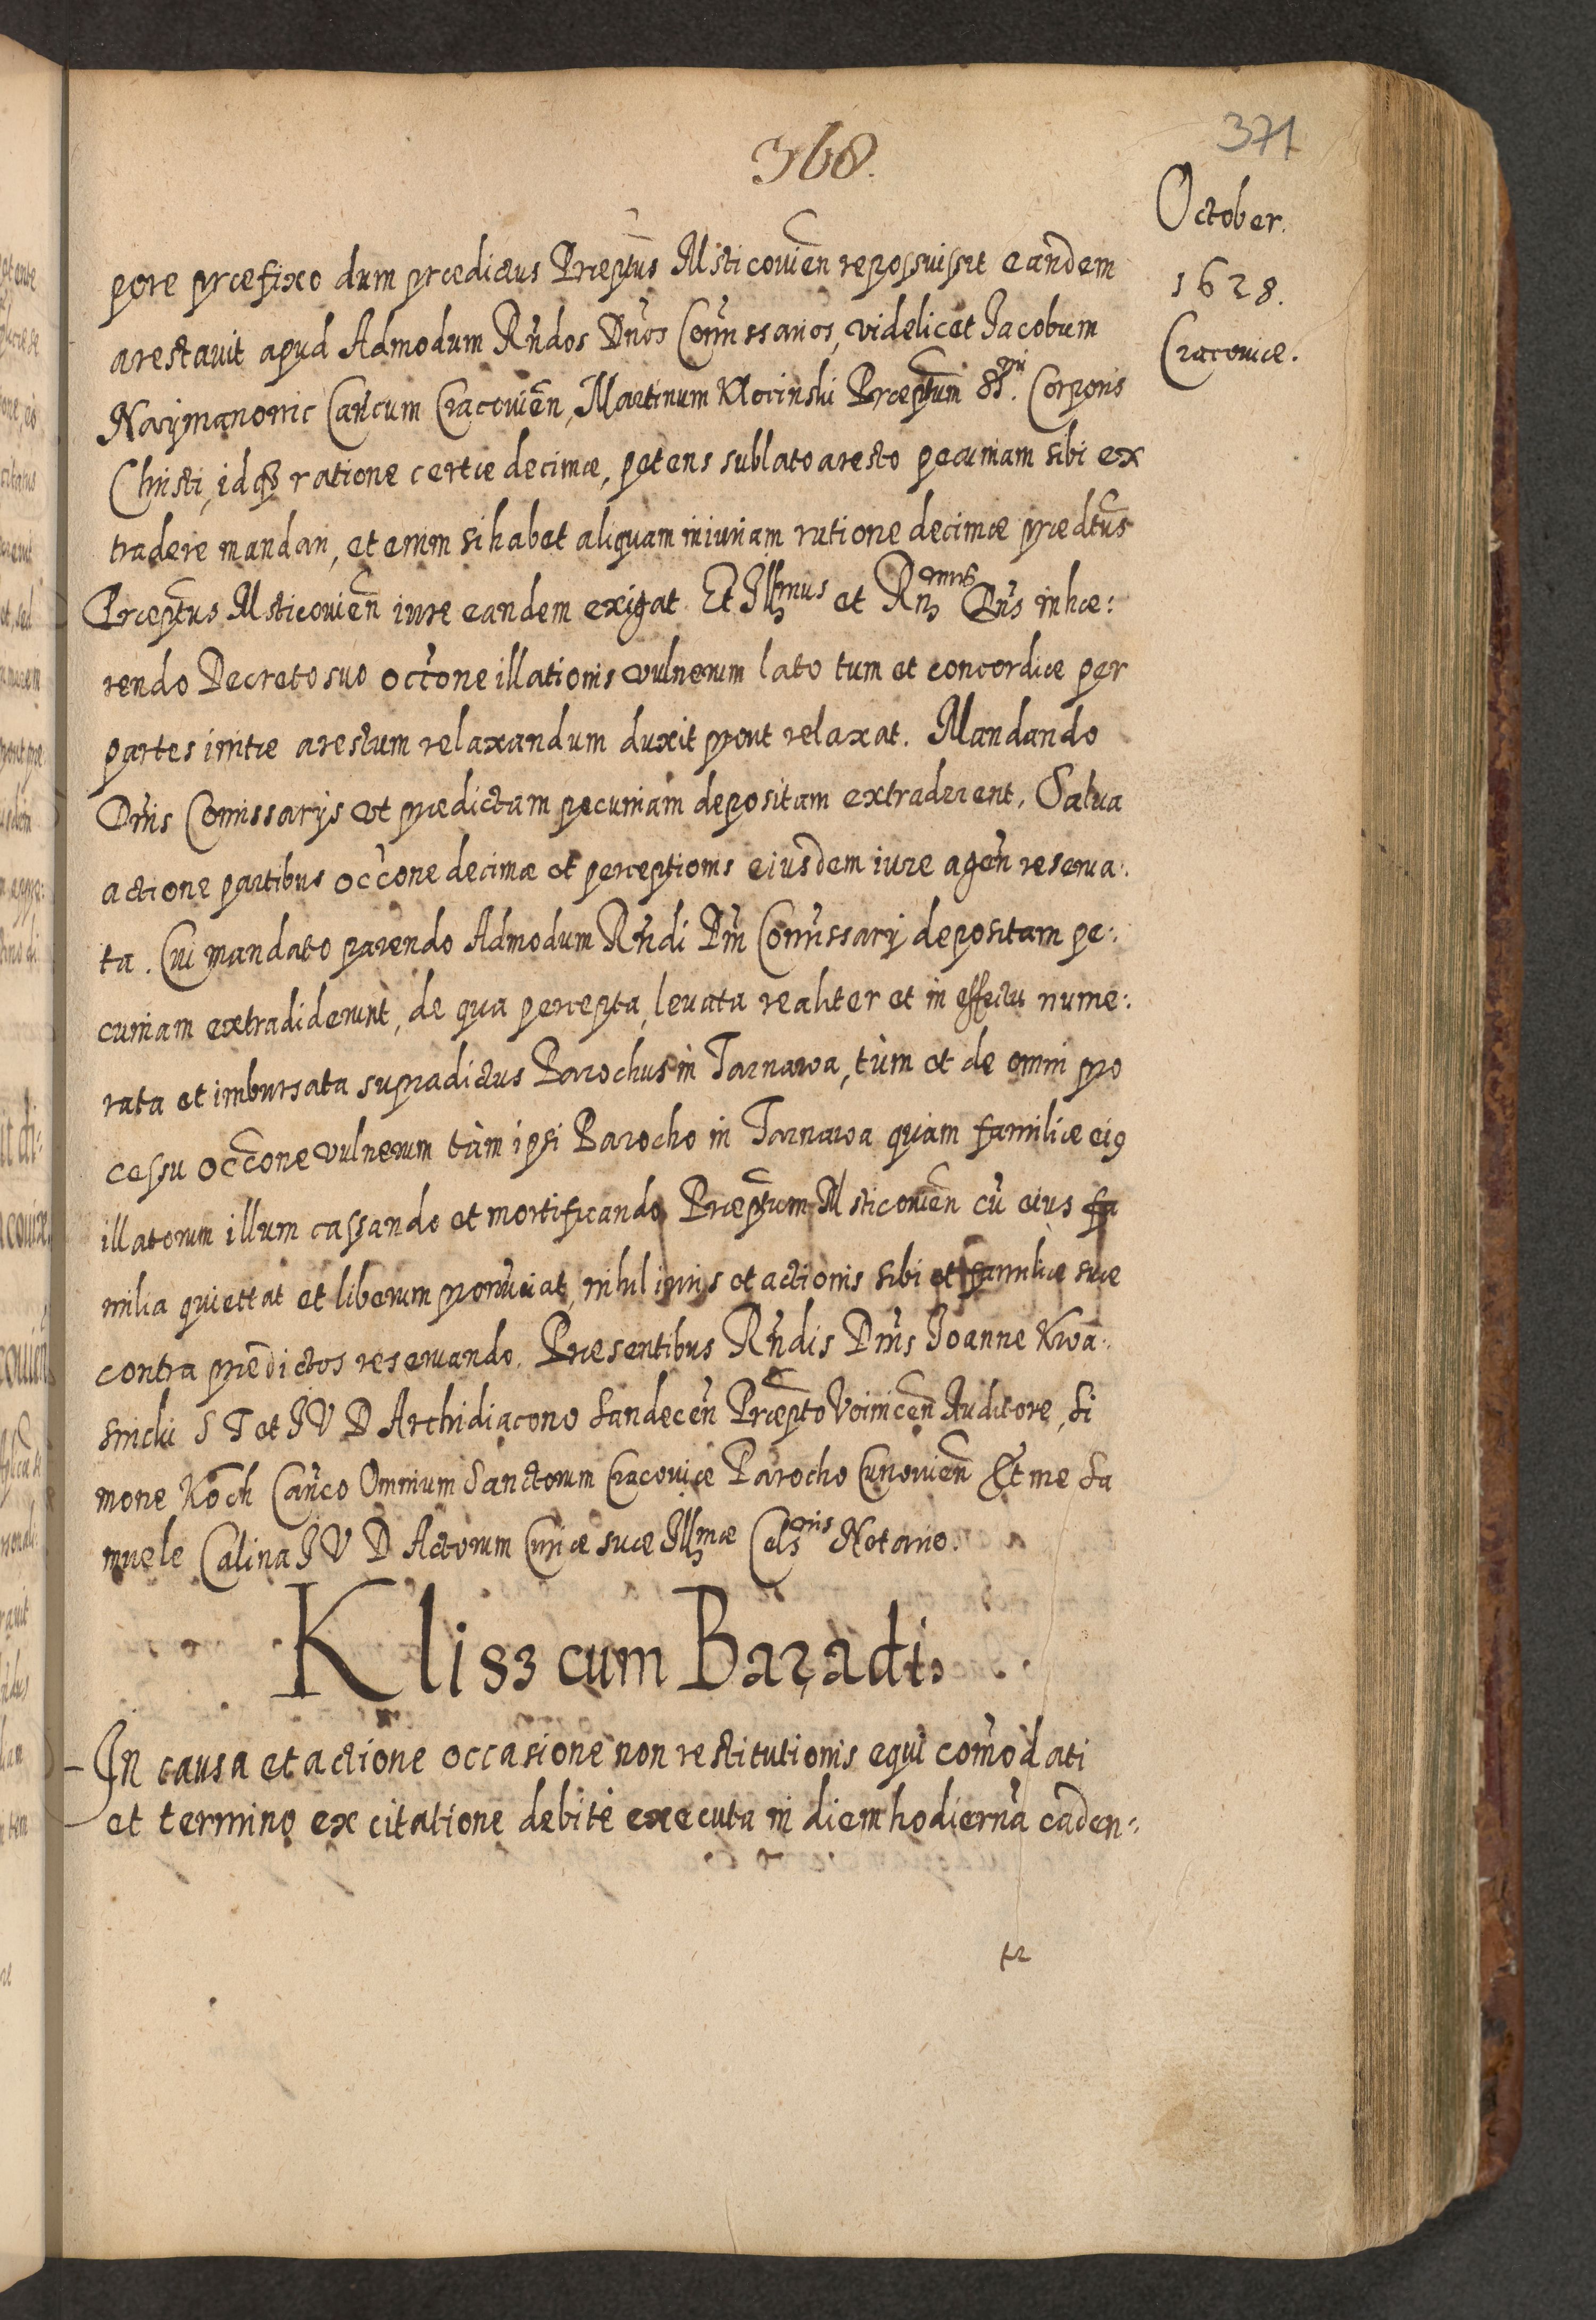 368.
371
October.
1628.
Cracoviæ.
pore præfixo dum prædictus Præptus Msticovien̄ reposuisset eandem
arestavit apud Admodum Rñdos Dños Com̃issarios, videlicet Jacobum
Naymanowic Can̄cum Cracovien̄, Martinum Kłocinski Præptum SSmi. Corporis
Christi, idq₃ ratione certæ decimæ, petens sublato aresto pecuniam sibi ex
tradere mandari, et enim si habet aliquam iniuriam ratione decimæ prædtus
Præptus Msticovien̄ iure eandem exigat. Et Illmus et Rñmus Dñs inhæ:
rendo Decreto suo occ̃one illationis vulnerum lato tum et concordiæ per
partes initæ arestum relaxandum duxit prout relaxat. Mandando
Dñis Com̃issarijs ut prædictam pecuniam depositam extraderent, Salva
actione partibus occ̃one decimæ et perceptionis eiusdem iure agen̄ reserva:
ta. Cui mandato parendo Admodum Rñdi Dñi Com̃issarij depositam pe:
cuniam extradiderunt, de qua percepta, levata realiter et in effectu nume:
rata et imbursata supradictus Parochus in Tarnawa, tùm et de omni pro
cessu occ̃one vulnerum tàm ipsi Parocho in Tarnawa quàm familiæ eiꝰ
illatorum illum cassando et mortificando Præptum Msticovien̄ cũ eius fa
milia quiettat et liberum pronũciat, nihil iuris et actionis sibi et familiæ suæ
contra prædictos reservando. Præsentibus Rñdis Dñis Joanne Kwa:
snicki S T et J V D Archidiacono Sandecen̄ Præpto Voinicen̄ Auditore, Si
mone Koch Can̄co Omnium Sanctorum Cracoviæ Parocho Cunovien̄ Et me Sa
muele Calina J V D Actorum Curiæ suæ Illmæ Cels̃nis Notario.
Klisz cum Barądi.
In causa et actione occasione non restitutionis equi com̃odati
et termino ex citatione debitè executa in diem hodiernã caden: